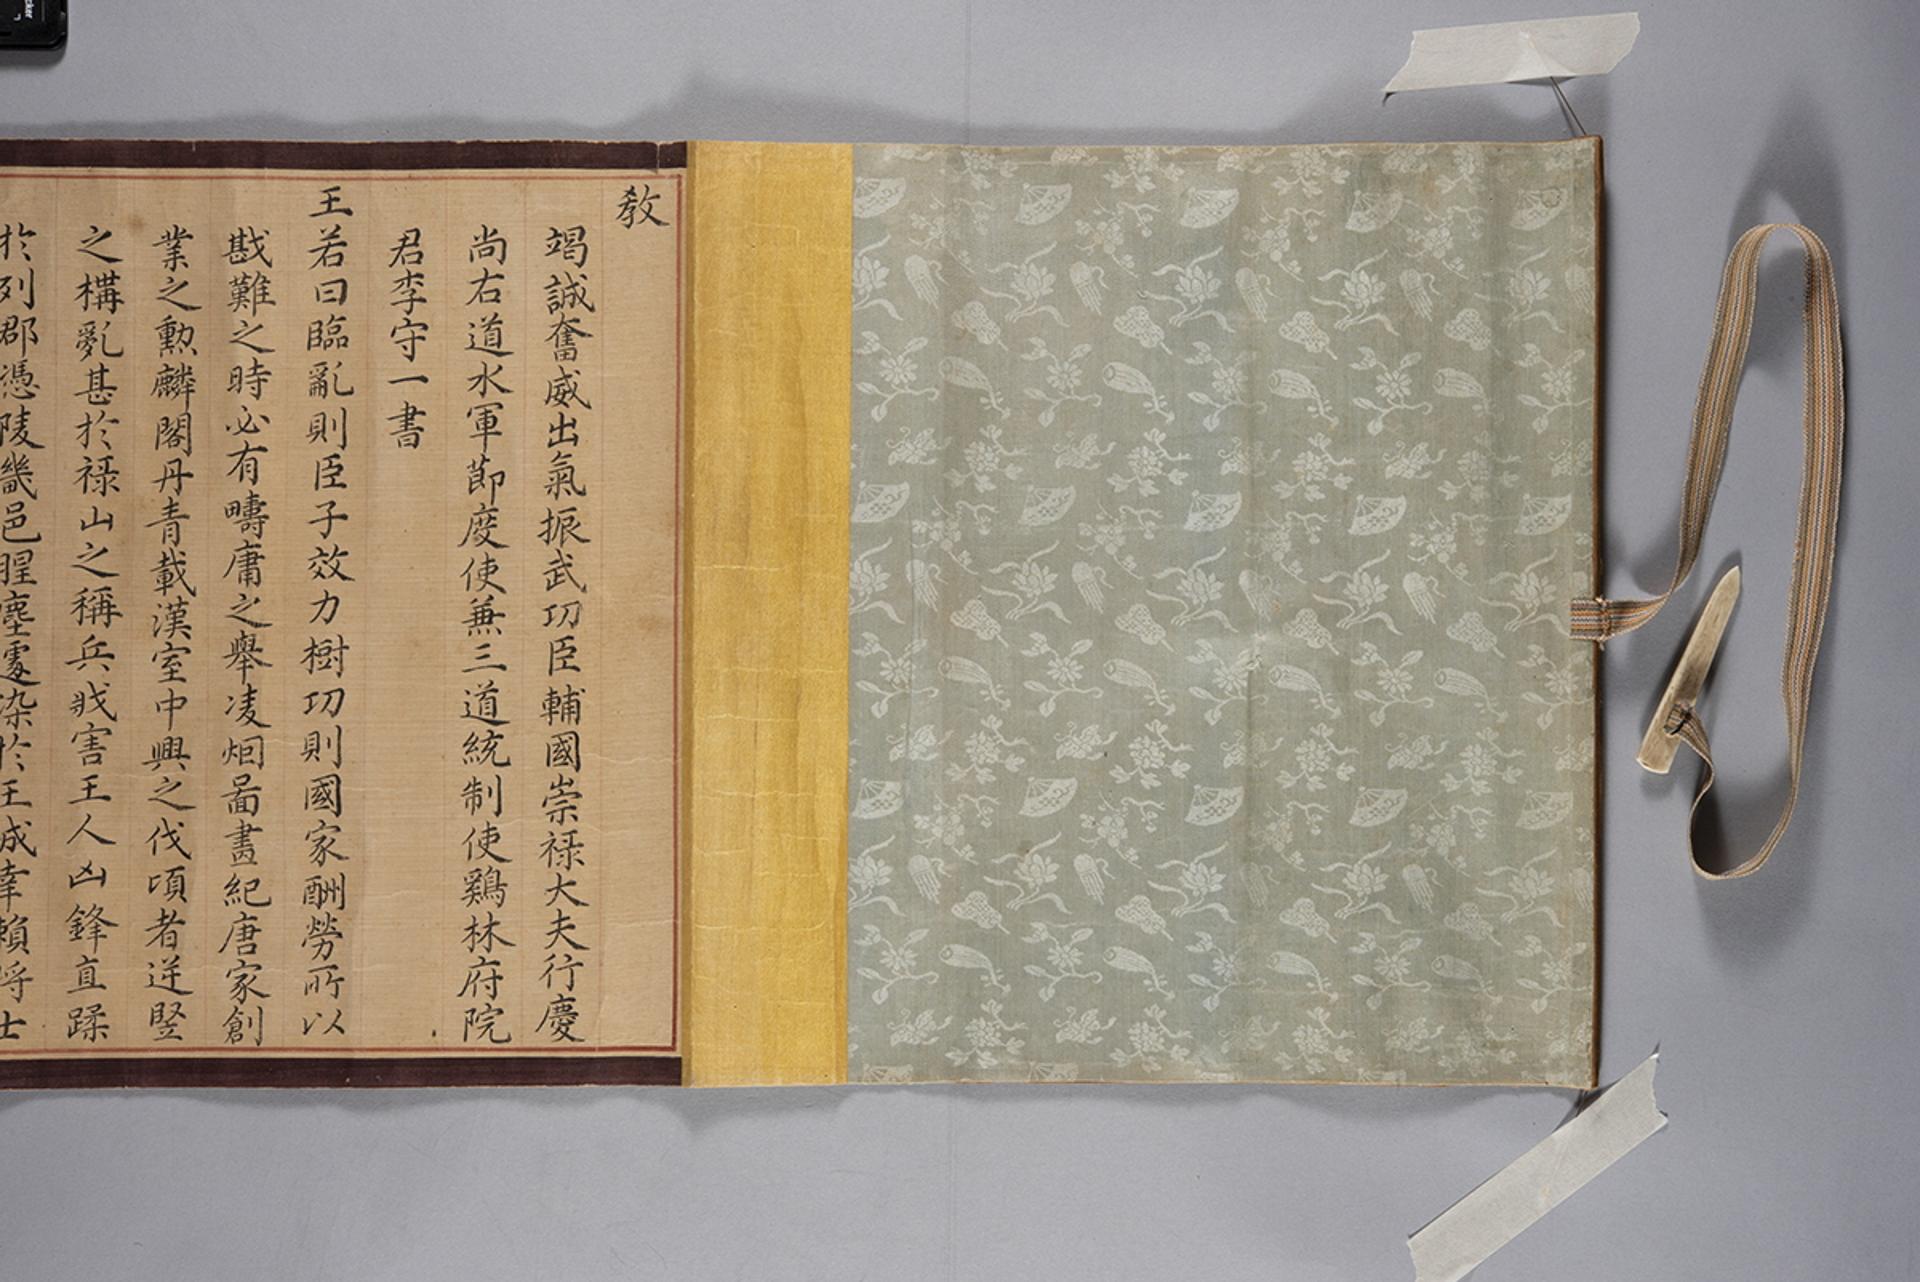 教
竭誠奮威出氣振武功臣輔國崇祿大夫行慶
尚右道水軍節度使兼三道統制使鷄林府院
君李守一書
王若曰臨亂則臣子效力樹功則國家酬勞所以
戡難之時必有疇庸之舉凌烟啚畵紀唐家創
業之勲麟閣丹青載漢室中興之伐頃者逆竪
之構亂甚於祿山之稱兵戕害王人凶鋒直蹂
於列郡憑陵畿邑腥塵䖏染於王成幸賴将士